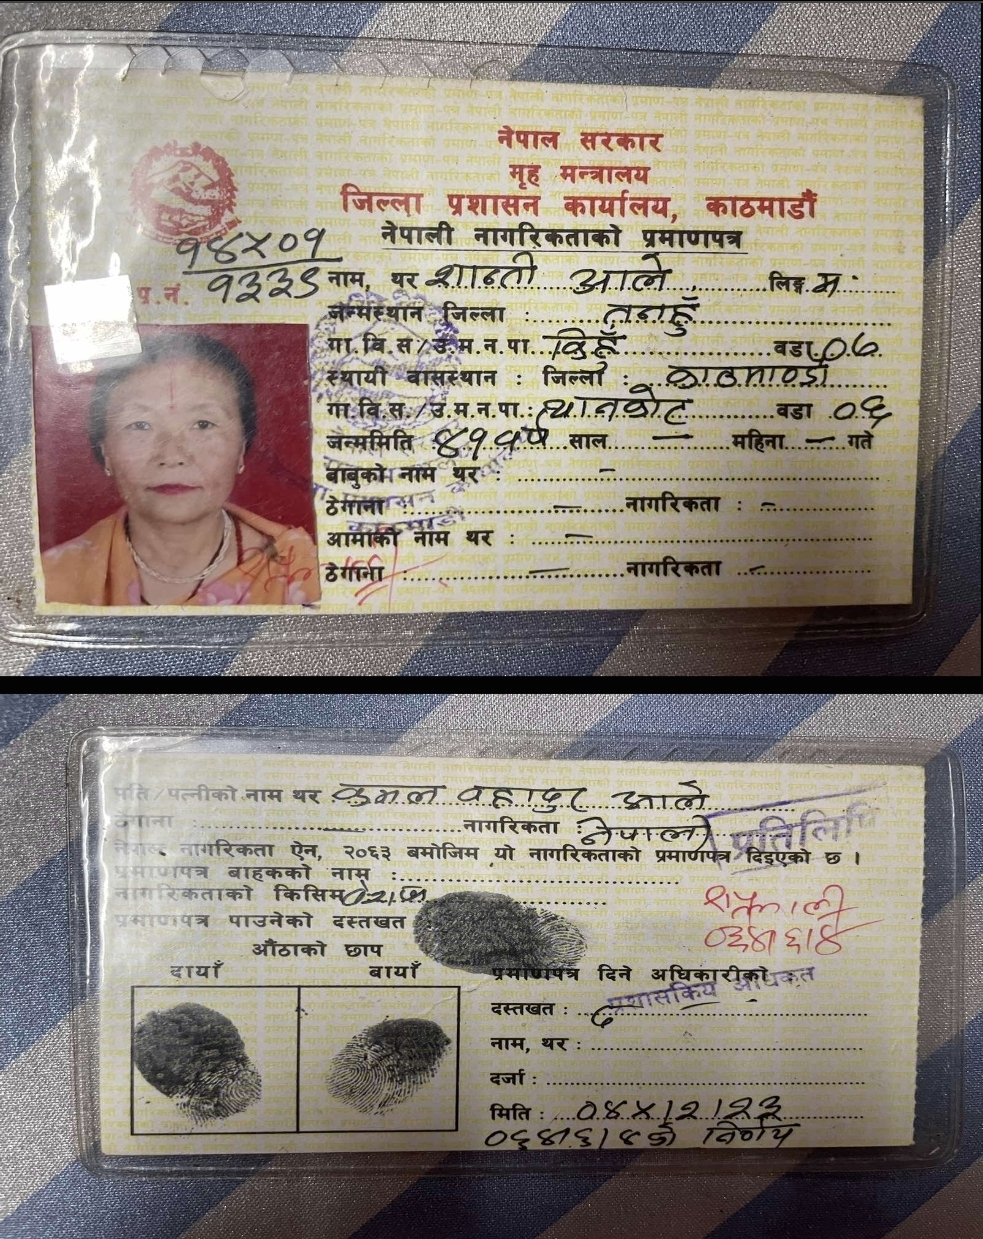 नेपाल सरकार
गृह मन्त्रालय
जिल्ला प्रशासन कार्यालय, काठमाडौं
नेपाली नागरिकताको प्रमाणपत्र
१४५०१
प्र.नं. १३३९
नाम, थर शान्ती आले लिङ्ग म.
जन्मस्थान जिल्ला : तनहुँ
गा.वि.स/उ.म.न.पा. किहुँ वडा ०७
स्थायी वासस्थान : जिल्ला : काठमाण्डौ
गा.वि.स./उ.म.न.पा.: थानकोट वडा ०६
जन्ममिति ४१ वर्ष साल — महिना — गते
बाबुको नाम थर : —
ठेगाना — नागरिकता : -
आमाको नाम थर : —
ठेगाना — नागरिकता -
पति/पत्नीको नाम थर कुमल वहादुर आले
ठेगाना : — नागरिकता : नेपाली
प्रतिलिपि
नेपाल नागरिकता ऐन, २०६३ बमोजिम यो नागरिकताको प्रमाणपत्र दिइएको छ ।
प्रमाणपत्र बाहकको नाम :
नागरिकताको किसिम वंशज
प्रमाणपत्र पाउनेको दस्तखत
औंठाको छाप
दायाँ बायाँ
प्रमाणपत्र दिने अधिकारीको
प्रशासकिय अधिकृत
दस्तखत :
नाम, थर :
दर्जा :
मिति : ०४५।२।२३
निर्णय